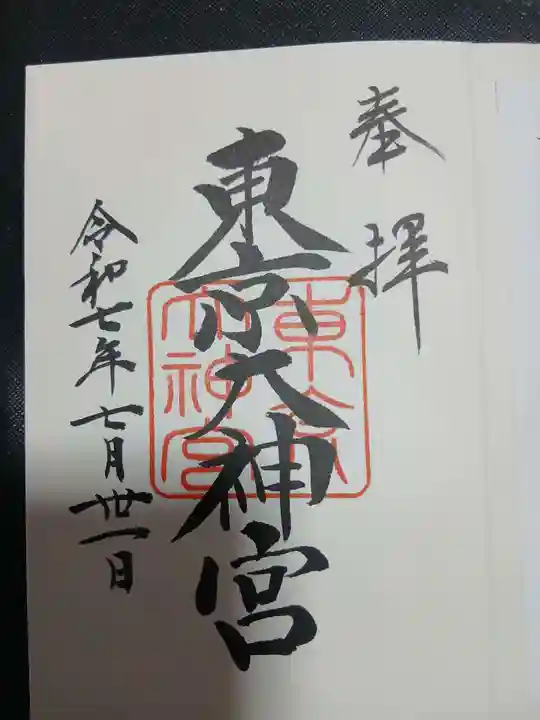 奉拝
東京大神宮
東京
大神宮
令和七年七月卅一日